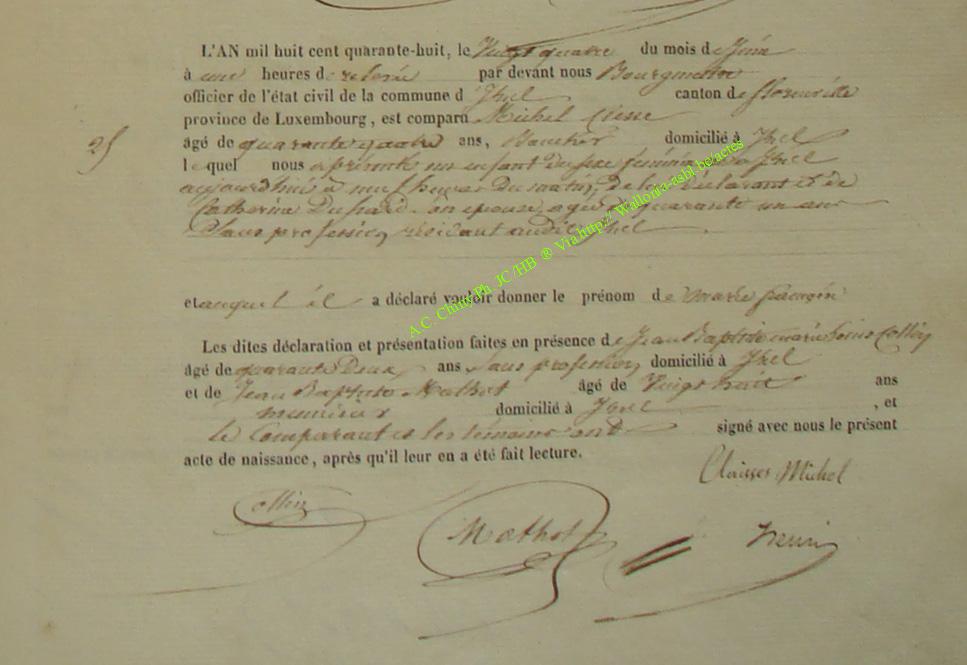 L'AN mil huit cent quarante-huit, le Vingt quatre du mois de Juin
à une heures de relevée par devant nous Bourgmestre
officier de l'état civil de la commune d'Izel canton de florenville
province de Luxembourg, est comparu Michel
25
âgé de quarante quatre ans, domicilié à Izel
lequel nous a présenté un enfant du sexe féminin né à Izel
aujourdhui à neuf heures du matin, de lui déclarant et de
Catherine son epouse, agée de quarante un ans
Sans profession résidant audit Izel
et auquel il a déclaré vouloir donner le prénom de marie
Les dites déclaration et présentation faites en présence de Jean Baptiste marie Louis Collin
âgé de quarante Deux ans Sans profession domicilié à Izel
et de Jean Baptiste Mathot âgé de Vingt huit ans
domicilié à Izel , et
Le Comparant et les témoins ont signé avec nous le présent
acte de naissance, après qu'il leur en a été fait lecture.
Michel
Collin
Mathot
A.C. Chiny Ph. JC/HB ® Via http:// Wallonia-asbl.be/actes